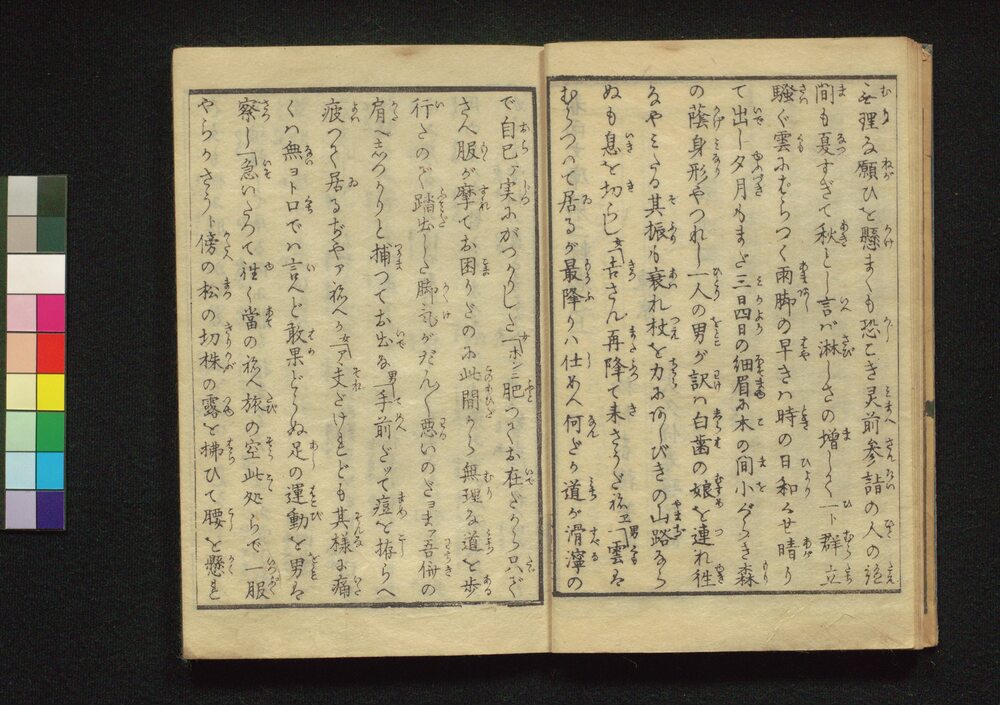 無理な願ひを懸まくも恐こき灵前参詣の人の絶
間も夏すぎて秋とし言バ淋しさの増して一ト群立
騒ぐ雲にむらつく雨脚の早きハ時の日和くせ晴り
て出し夕月もまだ三日四日の細眉に木の間小ぐらき森
の蔭身形やつれし一人の男が訳ハ白歯の娘を連れ徃
なやミたる其振も衰れ杖を力にあしびきの山路なら
ぬも息を切らし女「吉さん再降て来さうだねヱ男「雲は
むらついて居るが最降りハ仕めへ何だか道が滑濘の
で自己ァ実にがつかりした女「ホンニ肥つてお在だから只で
さへ服が摩てお困りだのに此間から無理な道を歩
行たので踏出した脚気がだん〳〵悪いのだヨまァ吾儕の
肩へしつかりと捕つてお出な男「手前だッて痘を拵らへ
疲つて居るぢやァねへか女「ア夫だけれども其様に痛
くハ無ヨトロでハ言へど敢果どらぬ足の運動を男は
察し「急いだつて徃く當のねへ旅の空此処らで一服
やらかさうト傍の松の切株の露を拂ひて腰を懸も